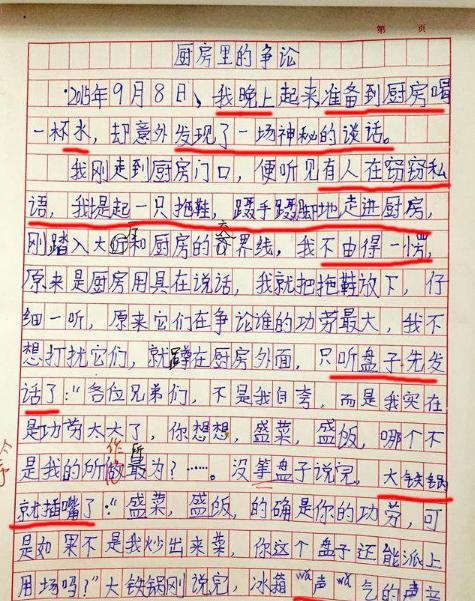 第 页
厨房里的争论
2015年9月8日、我晚上起来准备到厨房喝
一杯水，却意外发现了一场神秘的谈话。
我刚走到厨房门口，便听见有人在窃窃私
语，我提起一只拖鞋，蹑手蹑脚地走进厨房，
刚踏入大厅和厨房的交界线，我不由得一愣，
原来是厨房用具在说话，我就把拖鞋放下，仔
细一听，原来它们在争论谁的功劳最大，我不
想打扰它们，就蹲在厨房外面，只听盘子先发
话了："各位兄弟们，不是我自夸，而是我实在
是功劳太大了，你想想，盛菜，盛饭，哪个不
是我的所作所为？……。没等盘子说完，大铁锅
就插嘴了："盛菜，盛饭，的确是你的功劳，可
是如果不是我炒出来菜，你这个盘子还能派上
用场吗？"大铁锅刚说完，冰箱 声 气的声音